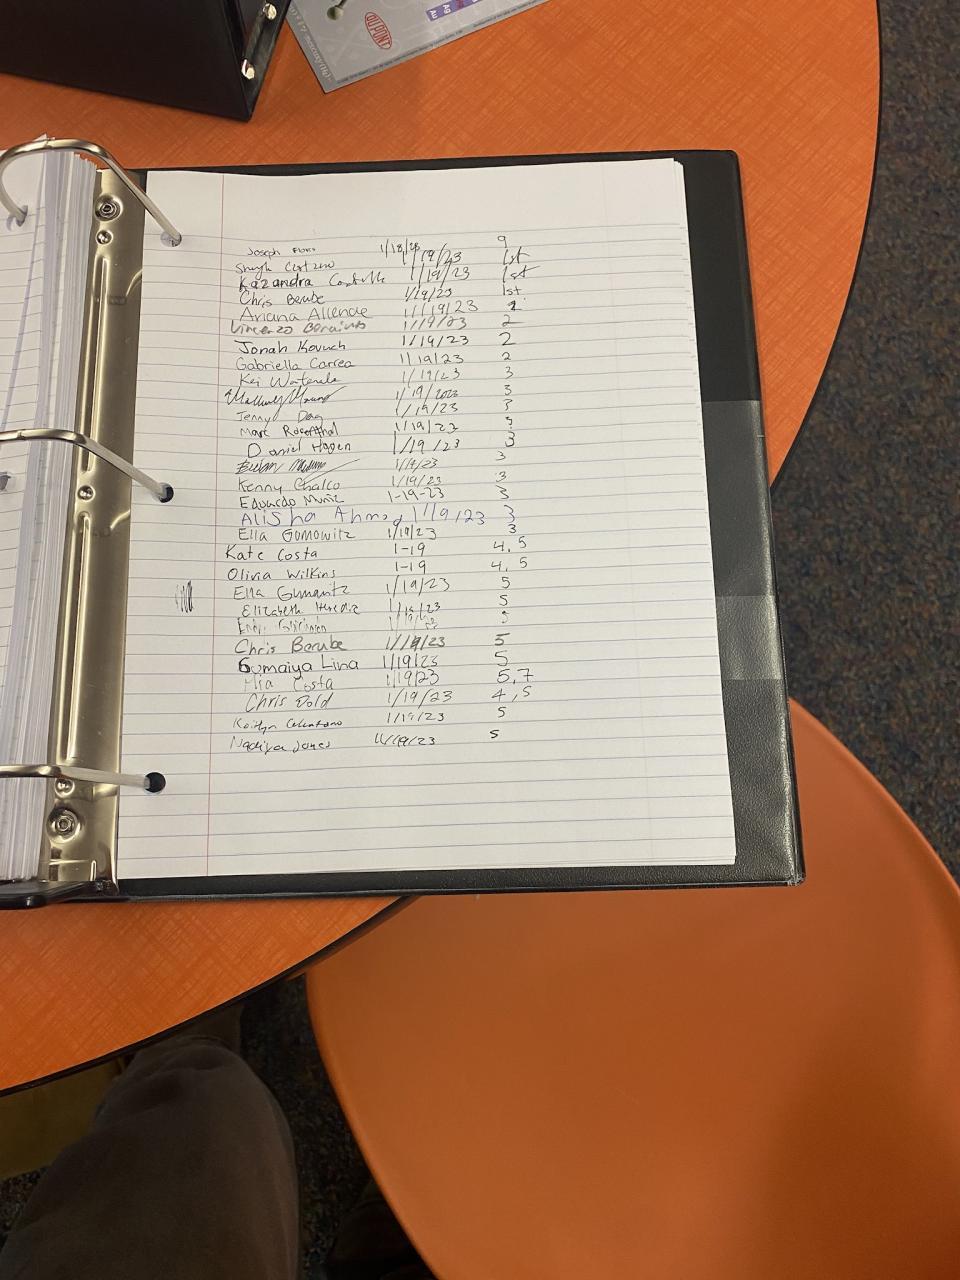 DUPONT
Ag
Au
Joseph 1/18/23 9
1/19/23 1st
Kazandra 1/19/23 1st
Chris Berube 1/19/23 1st
Ariana Allende 1/19/23 2
Vincenzo 1/19/23 2
Jonah Kovach 1/19/23 2
Gabriella Correa 1/19/23 2
Kei Watanabe 1/19/23 3
1/19/2023 3
Jenny Dag 1/19/23 3
Marc Rosenthal 1/19/23 3
Daniel Hagen 1/19/23 3
1/19/23 3
Kenny Chalco 1/19/23 3
Eduardo Muniz 1-19-23 3
Alisha Ahmad 1/19/23 3
Ella Gomowitz 1/19/23 3
Kate Costa 1-19 4, 5
Olivia Wilkins 1-19 4, 5
Ella 1/19/23 5
Elizabeth Heredia 1/19/23 5
5
Chris Berube 1/19/23 5
Sumaiya Lina 1/19/23 5
Mia Costa 1/19/23 5,7
Chris Dold 1/19/23 4,5
Kaitlyn 1/19/23 5
Nadiya Jones 1/19/23 5